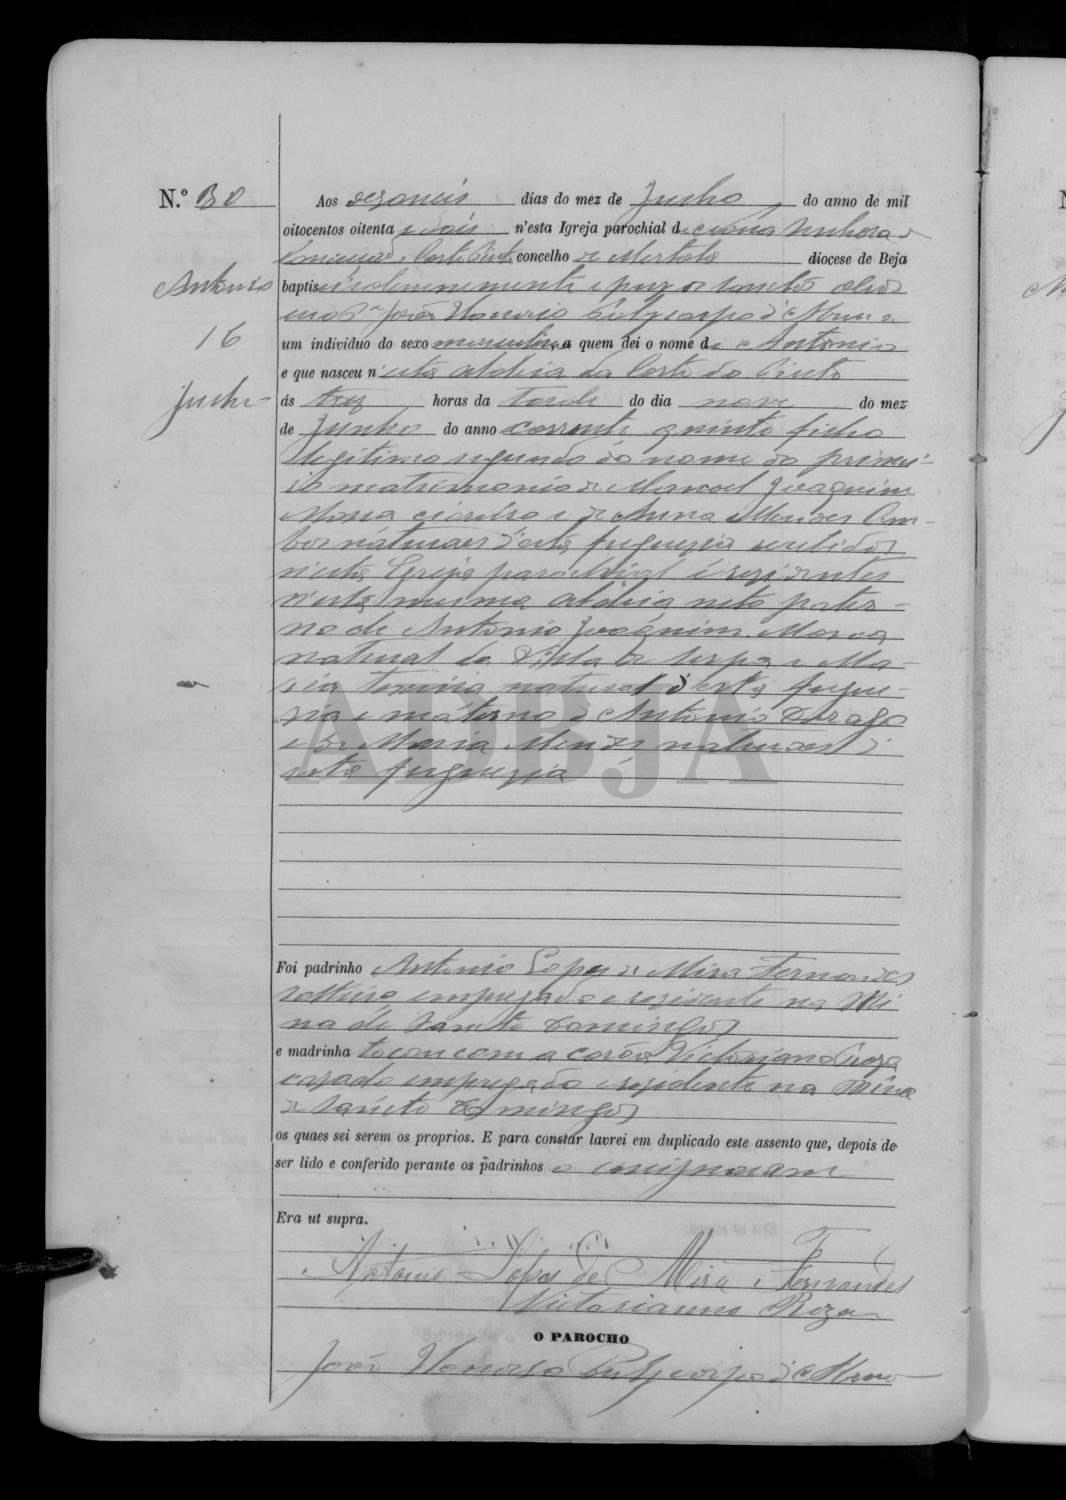 N.º 30
Aos dezaseis dias do mez de Junho do anno de mil
oitocentos oitenta e dois n'esta Igreja parochial de Senhora
Corte Pinto concelho de Mertola diocese de Beja
Antonio
baptisei solemnemente e puz os sanctos oleos
eu o P.e João Honorio Polycarpo d'
16
um individuo do sexo masculino a quem dei o nome de Antonio
e que nasceu n'esta aldeia da Corte do Pinto
Junho
ás trez horas da tarde do dia nove do mez
de Junho do anno corrente quinto filho
legitimo segundo do nome do primei-
ro matrimonio de Manoel Joaquim
e de Anna Mendes Am-
bos naturaes d'esta freguezia recebidos
n'esta Igreja parochial e residentes
n'esta mesma aldeia neto pater-
no de Antonio Joaquim
natural da Villa de Serpa e Ma-
ria natural d'esta fregue-
zia e materno de Antonio Drago
e de Maria Mendes naturaes d'
esta freguezia
ADBJA
Foi padrinho Antonio Lopes de Mira Fernandes
solteiro empregado e residente na Mi
na de Sancto Domingos
e madrinha tocou com a corôa Victoriano Roza
casado empregado e residente na Mina
de Sancto Domingos
os quaes sei serem os proprios. E para constar lavrei em duplicado este assento que, depois de
ser lido e conferido perante os padrinhos
Era ut supra.
Antonio Lopes de Mira Fernandes
Victorianno Roza
O PAROCHO
João Honorio Polycarpo d'